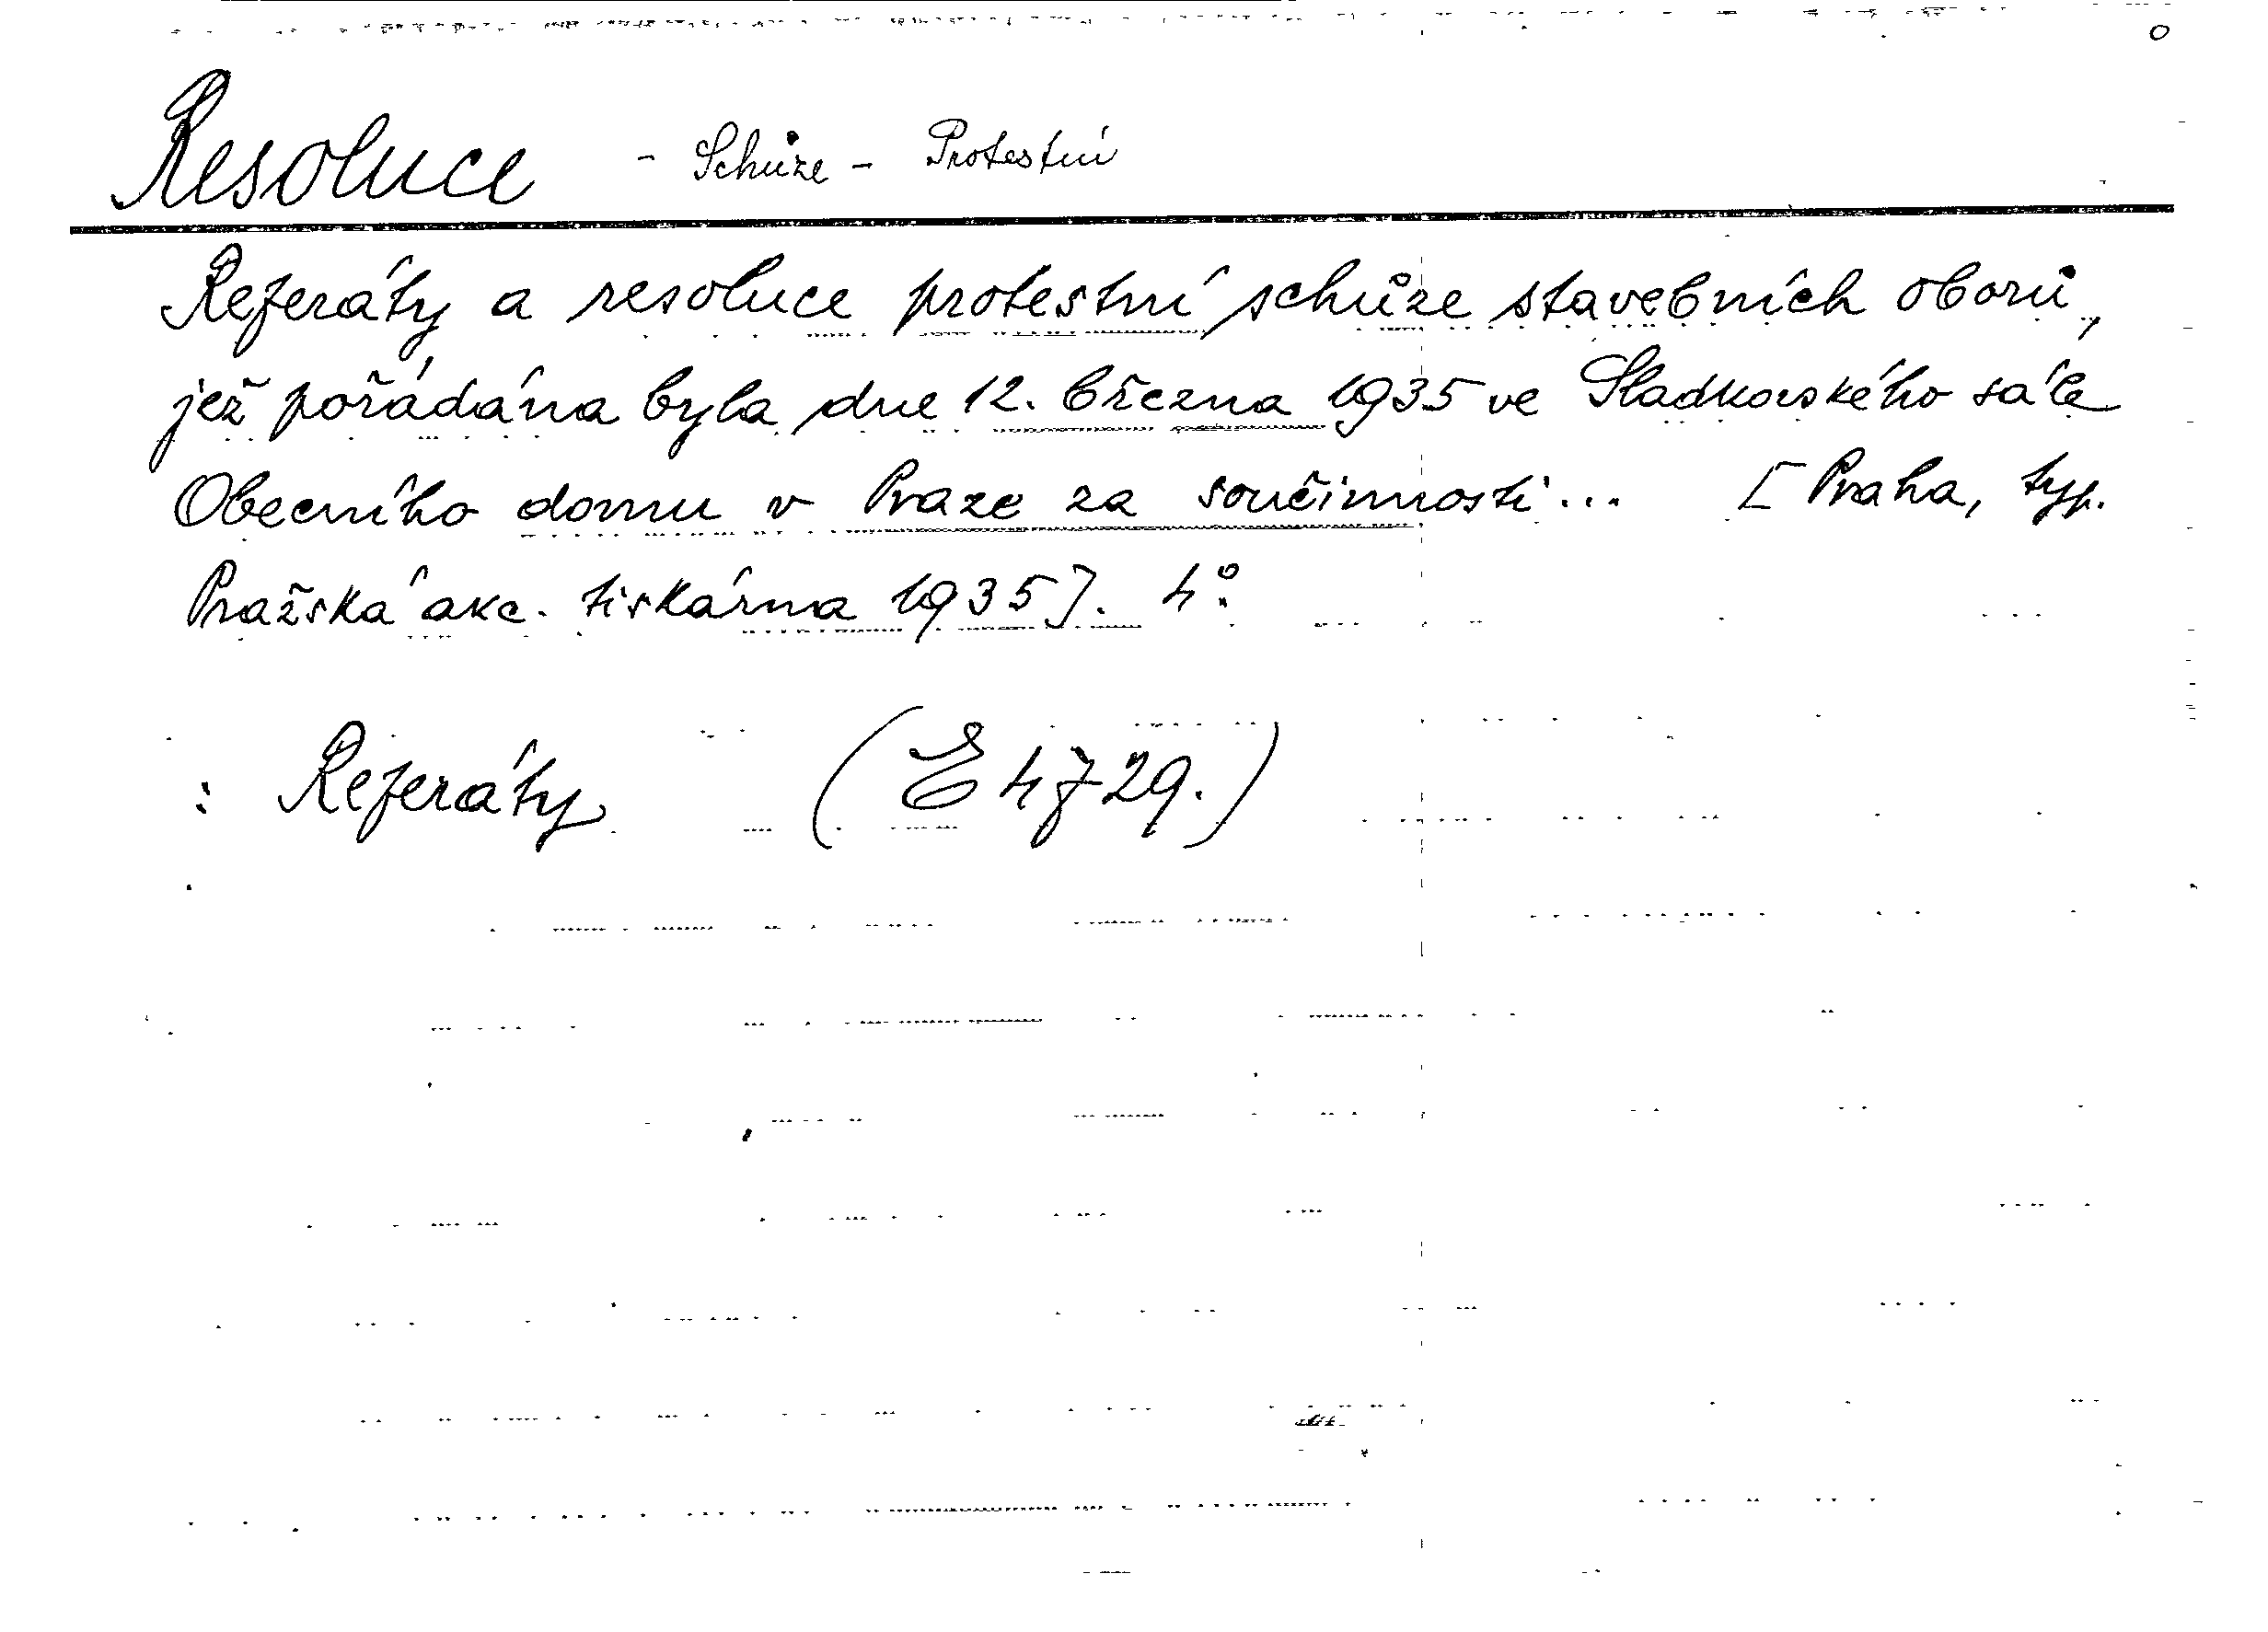 Resoluce - Schůze - Protestní
Referáty a resoluce protestní schůze stavebních oborů,
jež pořádána byla dne 12. března 1935 ve Sladkovského sále
Obecního domu v Praze za součinnosti... [Praha, typ.
Pražská akc. tiskárna 1935]. 4°.
: Referáty (E 4729.)